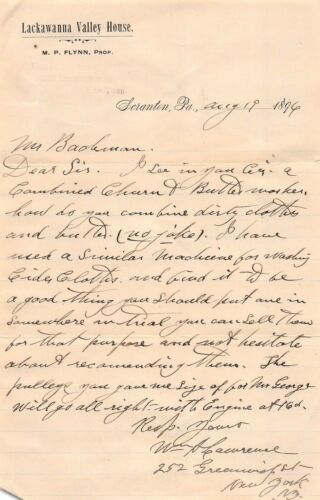 Lackawanna Valley House.
M. P. FLYNN, PROP.
Scranton, Pa., Aug 19 1896
Mr Bachman.
Dear Sir. I see in you Cir. a
Combined Churn & Butter worker,
how do you combine dirty clothes
and butter. (no joke). I have
used a Similar Machine for Washing
Cider Cloths. and find it to be
a good thing you should put one in
Somewhere on trial you can Sell them
for that purpose and not hesitate
about recomending them. The
pulleys you gave me Size of for Mr George
Will go all right with Engine at 160.
Resp. Yours
Wm A Lawrence
252 Greenwich St
New York